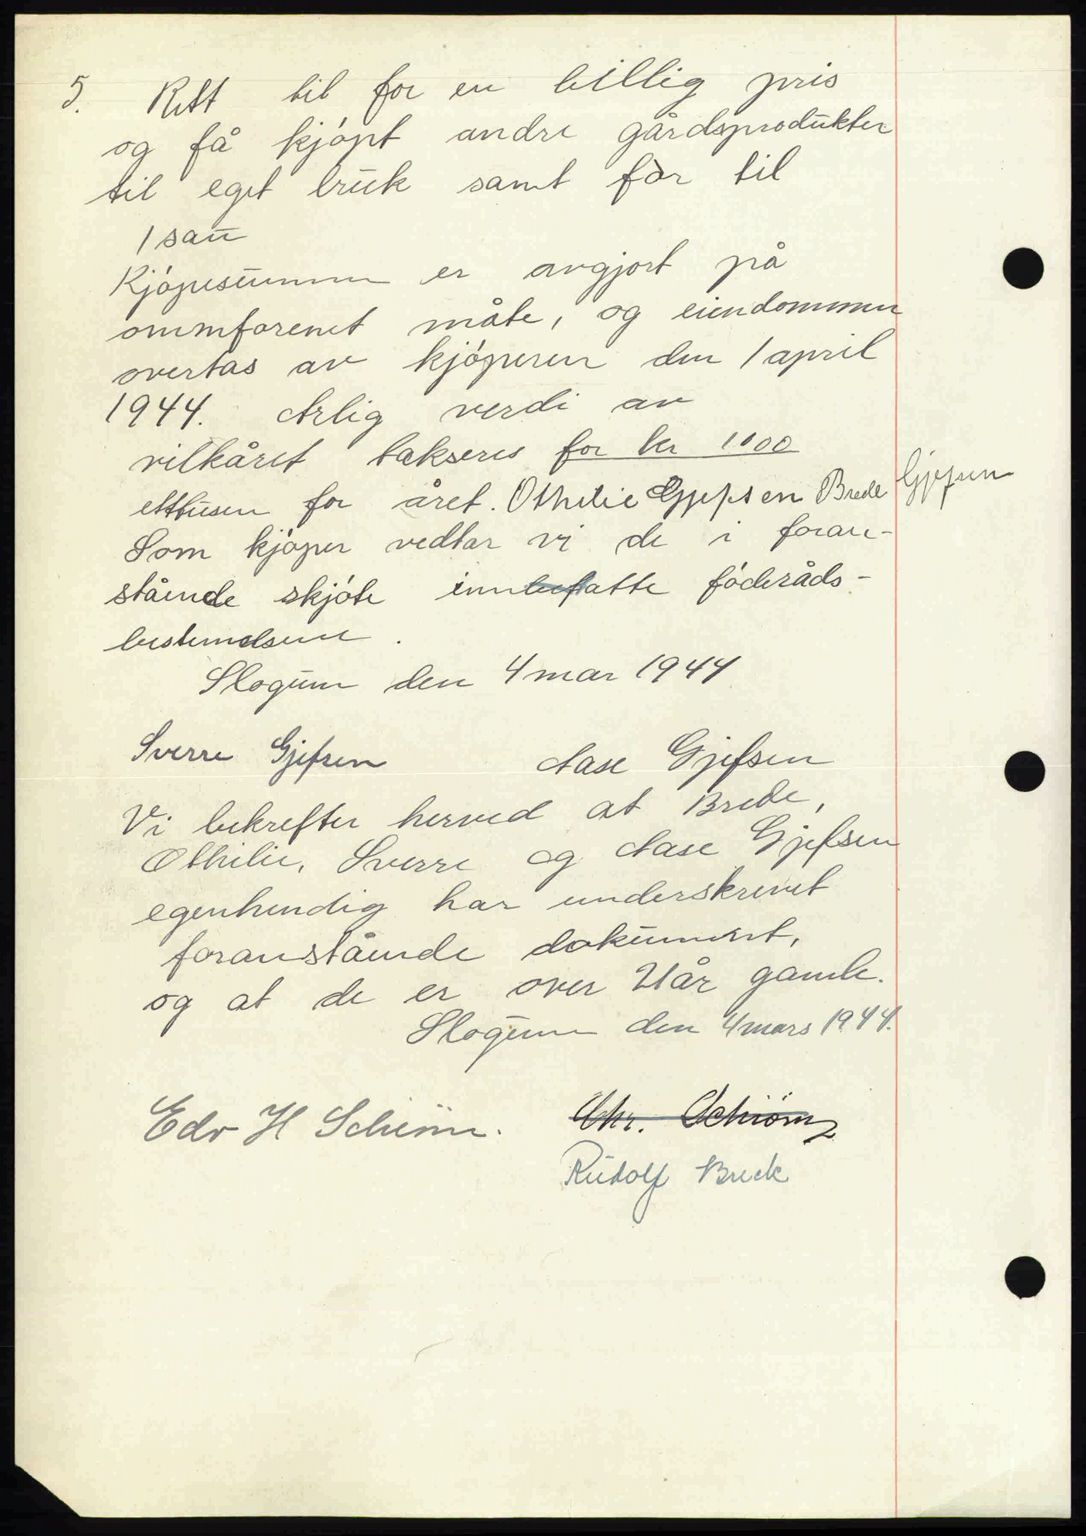 5. Rett til for en billig pris
og få kjøpt andre gårdsprodukter
til eget bruk samt fòr til
1 sau
Kjøpesummen er avgjort på
ommforenet måte, og eiendommen
overtas av kjøperen den 1 april
1944. Årlig verdi av
vilkåret takseres for kr 1100
etthusen for året. Othilie Gjefsen Brede Gjefsen
Som kjøper vedtar vi de i foran-
stående skjøte innbefatte föderåds-
bestemelsene.
Slogum den 4 mar 1944
Sverre Gjefsen Aase Gjefsen
Vi bekrefter herved at Brede,
Othilie, Sverre og Aase Gjefsen
egenhendig har underskrevet
foranstående dokument,
og at de er over 21 år gamle.
Slogum den 4 mars 1944.
Edv H Schiönn. Chr. Schiönn
Rudolf Buck